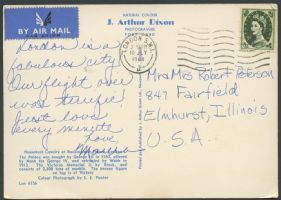 BY AIR MAIL
NATURAL COLOUR
J. Arthur Dixon
PHOTOGRAVURE
POST CARD
LONDON S.W.1
London is a
fabulous city
Our flight over
was terrific!
Least love
every minute
Love
Mrs Mrs Robert Peterson
847 Fairfield
Elmhurst, Illinois
U.S.A.
Household Cavalry at
The Palace was bought by George III in 1762, altered
by Nash for George IV, and refronted by Webb in
1913. The Victoria Memorial is by Brock, and
consists of 2,300 tons of marble. The bronze figure
on top is of Victory
Colour Photograph by E. E. Painter
Lon 6156